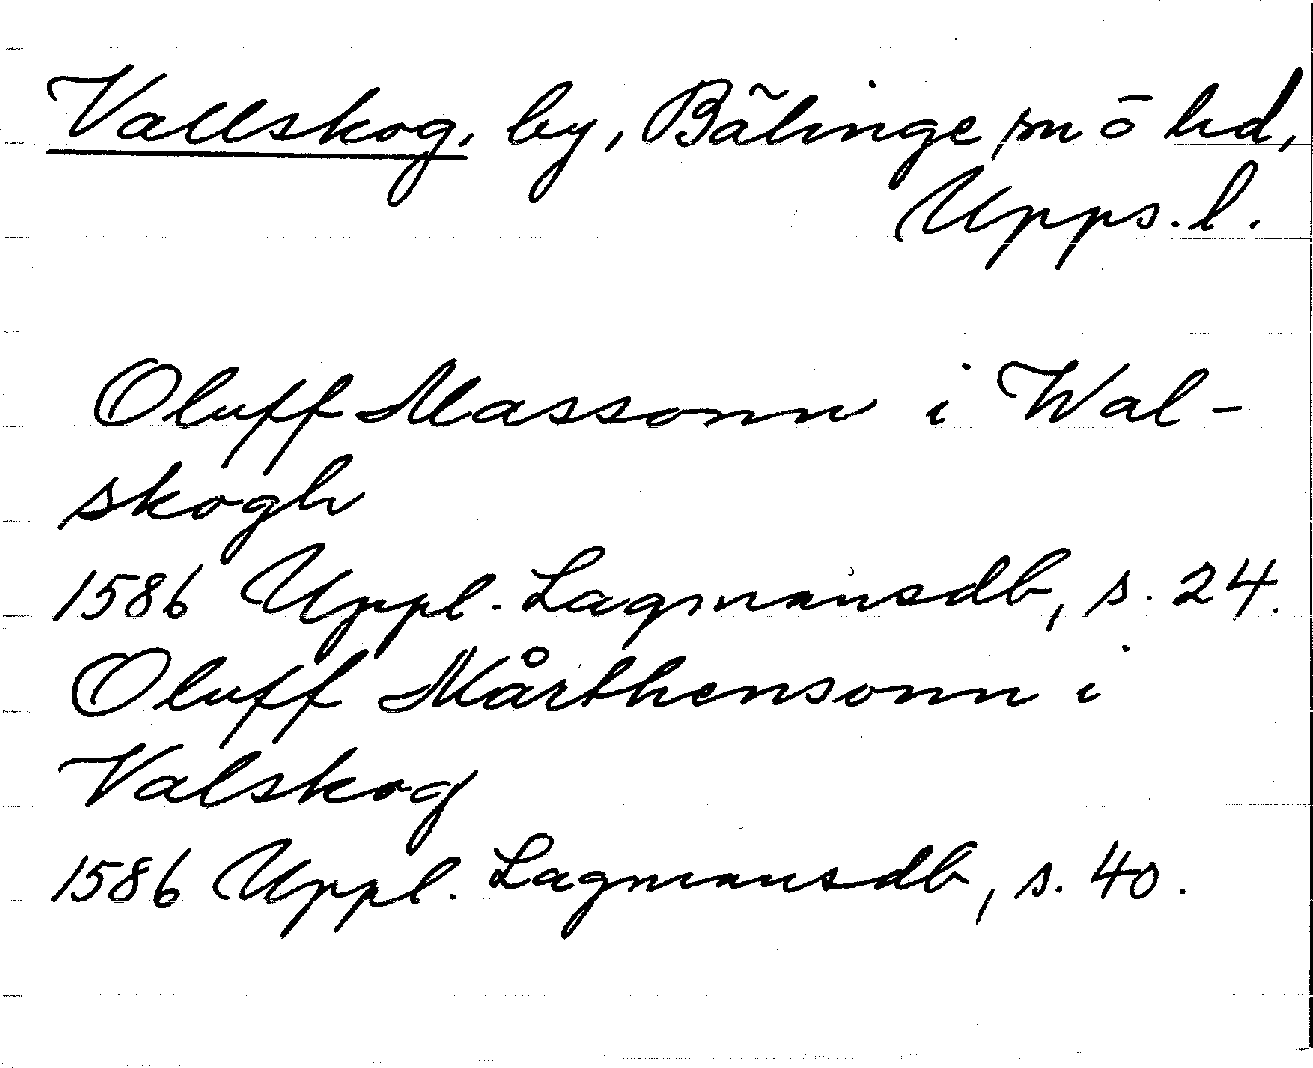 Vallskog, by, Bälinge sn ö hd,
Upps. l.
Oluff Massonn i Wal-
skogh
1586 Uppl. Lagmansdb, s. 24.
Oluff Mårthensonn i
Valskog
1586 Uppl. Lagmansdb, s. 40.